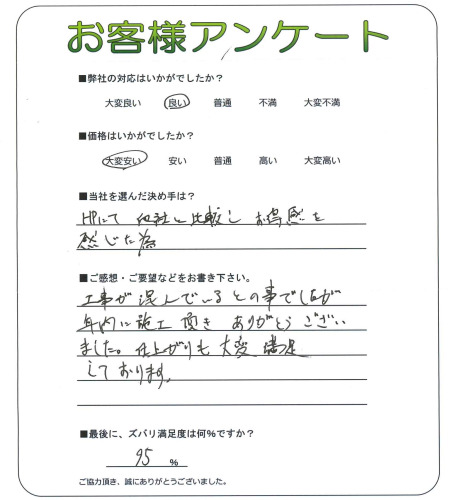 お客様アンケート
■弊社の対応はいかがでしたか？
大変良い 良い 普通 不満 大変不満
■価格はいかがでしたか？
大変安い 安い 普通 高い 大変高い
■当社を選んだ決め手は？
HPにて 他社と比較し お得感を
感じた為
■ご感想・ご要望などをお書き下さい。
工事が混んでいるとの事でしたが
年内に施工頂き ありがとうござい
ました。仕上がりも大変満足
しております。
■最後に、ズバリ満足度は何%ですか？
95 %
ご協力頂き、誠にありがとうございました。